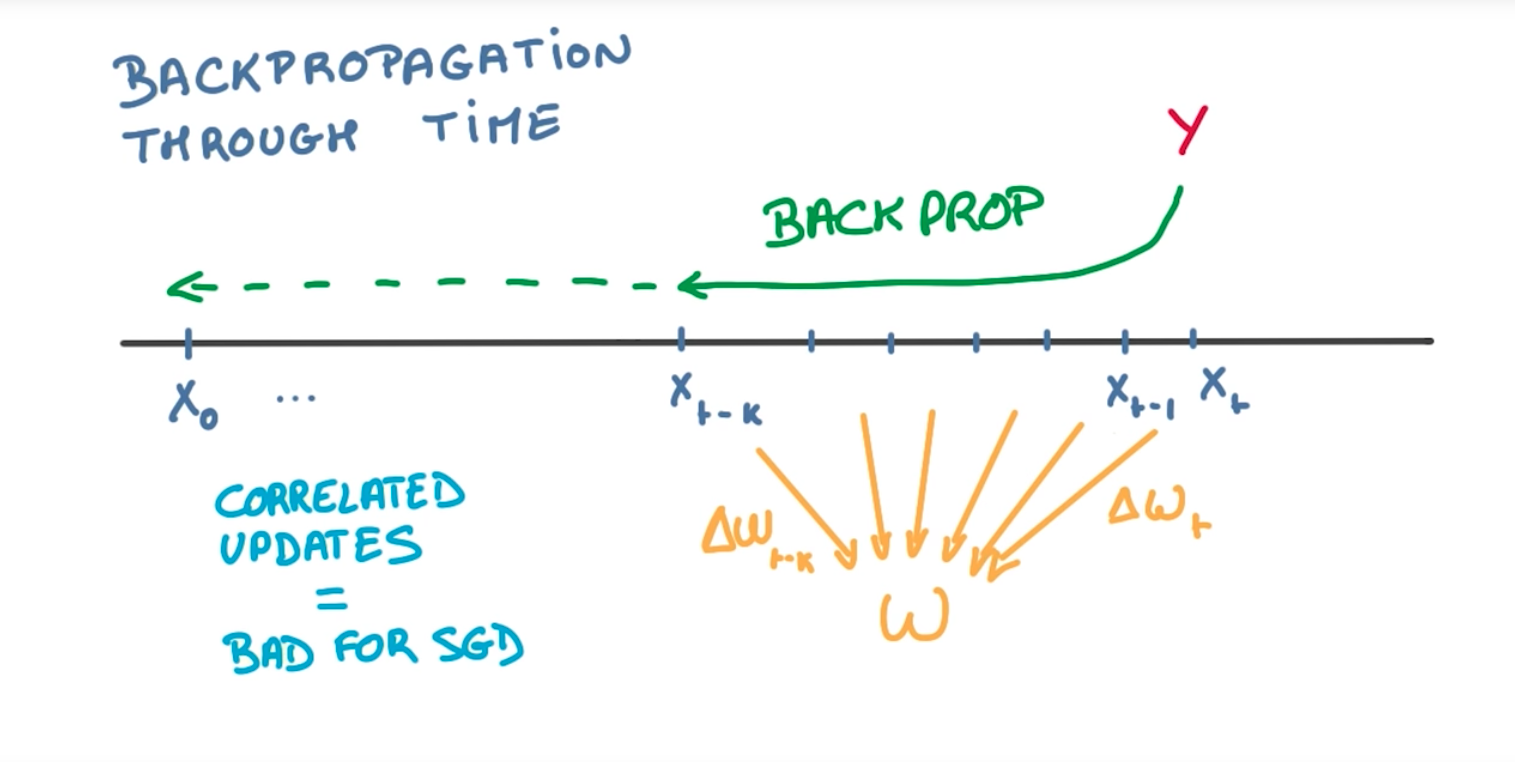 BACKPROPAGATION
THROUGH TIME
Y
BACK PROP
X₀ ... Xₜ₋ₖ Xₜ₋₁ Xₜ
CORRELATED
UPDATES
=
BAD FOR SGD
Δωₜ₋ₖ
Δωₜ
ω